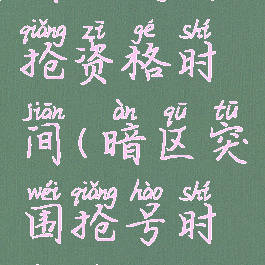 qiǎng zī gé shí
抢资格时
jiān àn qū tū
间(暗区突
wéi qiǎng hào shí
围抢号时